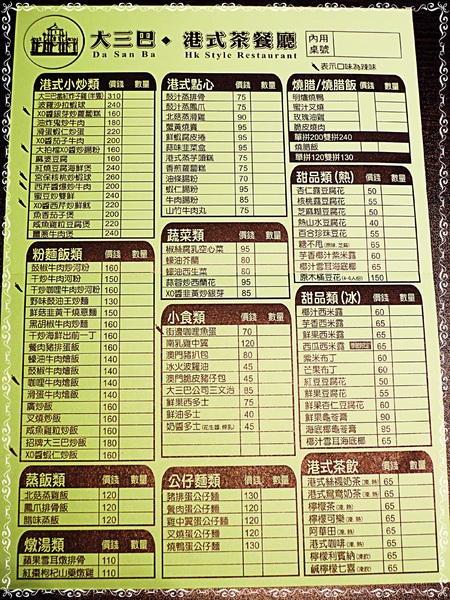 大三巴 • 港式茶餐廳
Da San Ba Hk Style Restaurant
內用
桌號
表示口味為辣味
港式小炒類 價錢 數量
大三巴當紅炸子雞(半隻) 310
波羅沙拉蝦球 240
XO醬銀芽炒蘿蔔糕 160
油炸鬼炒牛肉 200
滑蛋蝦仁炒蛋 200
XO醬茄子炒四季
麻婆豆腐 160
紅燒豆腐海鮮煲 240
宮保核桃炒蝦球 260
西芹醬爆炒牛肉 180
蜜豆炒雙鮮 240
XO醬西芹炒鮮魷 220
魚香茄子煲 220
咸魚雞粒豆腐煲 220
薑蔥牛肉煲 240
港式點心 價錢 數量
豉汁蒸排骨 75
豉汁蒸鳳爪 75
北菇蒸滑雞 90
蟹黃燒賣 95
鮮蝦腐皮捲 95
蒜味韭菜盒 95
港式蒸芋頭糕 75
香煎蘿蔔糕 75
油條腸粉 70
蝦仁腸粉 95
牛肉腸粉 85
山竹牛肉丸 75
燒腊/燒腊飯 價錢 數量
明爐燒鴨
蜜汁叉燒
玫瑰油雞
脆皮燒肉
單拼200雙拼240
燒腊飯
單拼120雙拼130
甜品類(熱) 價錢 數量
杏仁露豆腐花 50
核桃露豆腐花 55
芝麻糊豆腐花 55
熱山水豆腐花 40
百合珍珠豆花 55
糖不甩(原味, 芝麻) 65
芋香椰汁紫米露 60
椰汁雪耳海底椰 65
原木桶豆花(4-6人份) 150
粉麵飯類 價錢 數量
豉椒牛肉炒河粉 160
干炒牛肉河粉 150
干炒咖哩牛肉炒河粉 160
野味豉油王炒麵 130
鮮菇韭黃干燒意麵 150
黑胡椒牛肉炒麵 160
干炒海鮮出前一丁 160
餐肉豬排蛋飯 160
蠔油牛肉燴飯 140
豉椒牛肉燴飯 140
咖哩牛肉燴飯 140
滑蛋牛肉燴飯 140
廣炒飯 160
叉燒炒飯 160
咸魚雞粒炒飯 160
招牌大三巴炒飯 160
XO醬蝦仁炒飯 160
蔬菜類 價錢 數量
椒絲腐乳空心菜 95
蠔油芥蘭 80
蠔油西生菜 80
蒜蓉炒西蘭花 90
XO醬韭黃炒銀芽 85
小食類 價錢 數量
街邊咖哩魚蛋 70
南乳雞中翼 75
澳門豬扒包 80
冰火菠蘿油 45
澳門脆皮豬仔包 45
大三巴公司三文治 85
鮮果西多士 75
鮮油多士 40
奶醬多士(花生醬, 煉乳) 45
甜品類(冰) 價錢 數量
椰汁西米露 60
芋香西米露 60
鮮果西米露 60
西瓜西米露 65
紫米布丁 60
芒果布丁 60
紅豆豆腐花 50
鮮果豆腐花 55
鮮果杏仁豆腐花 60
鮮果龜苓膏 90
海底椰龜苓膏 85
椰汁雪耳海底椰 65
蒸飯類 價錢 數量
北菇蒸雞飯 120
鳳爪排骨飯 120
腊味蒸飯 120
燉湯類 價錢 數量
蘋果雪耳燉排骨 110
紅棗枸杞山藥燉雞 110
公仔麵類 價錢 數量
豬排蛋公仔麵 130
餐肉蛋公仔麵 120
雞中翼蛋公仔麵 120
叉燒蛋公仔麵 120
燒鴨蛋公仔麵 130
港式茶飲 價錢 數量
港式絲襪奶茶(凍, 熱) 65
港式鴛鴦奶茶(凍, 熱) 65
檸檬茶(凍, 熱) 65
檸檬可樂(凍, 熱) 65
阿華田(凍, 熱) 65
港式咖啡(凍, 熱) 65
檸檬利賓納(凍飲) 65
鹹檸檬七喜(凍飲) 65